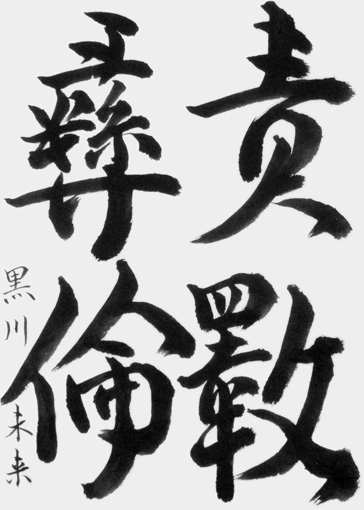 責斁
彝倫
黒川未来